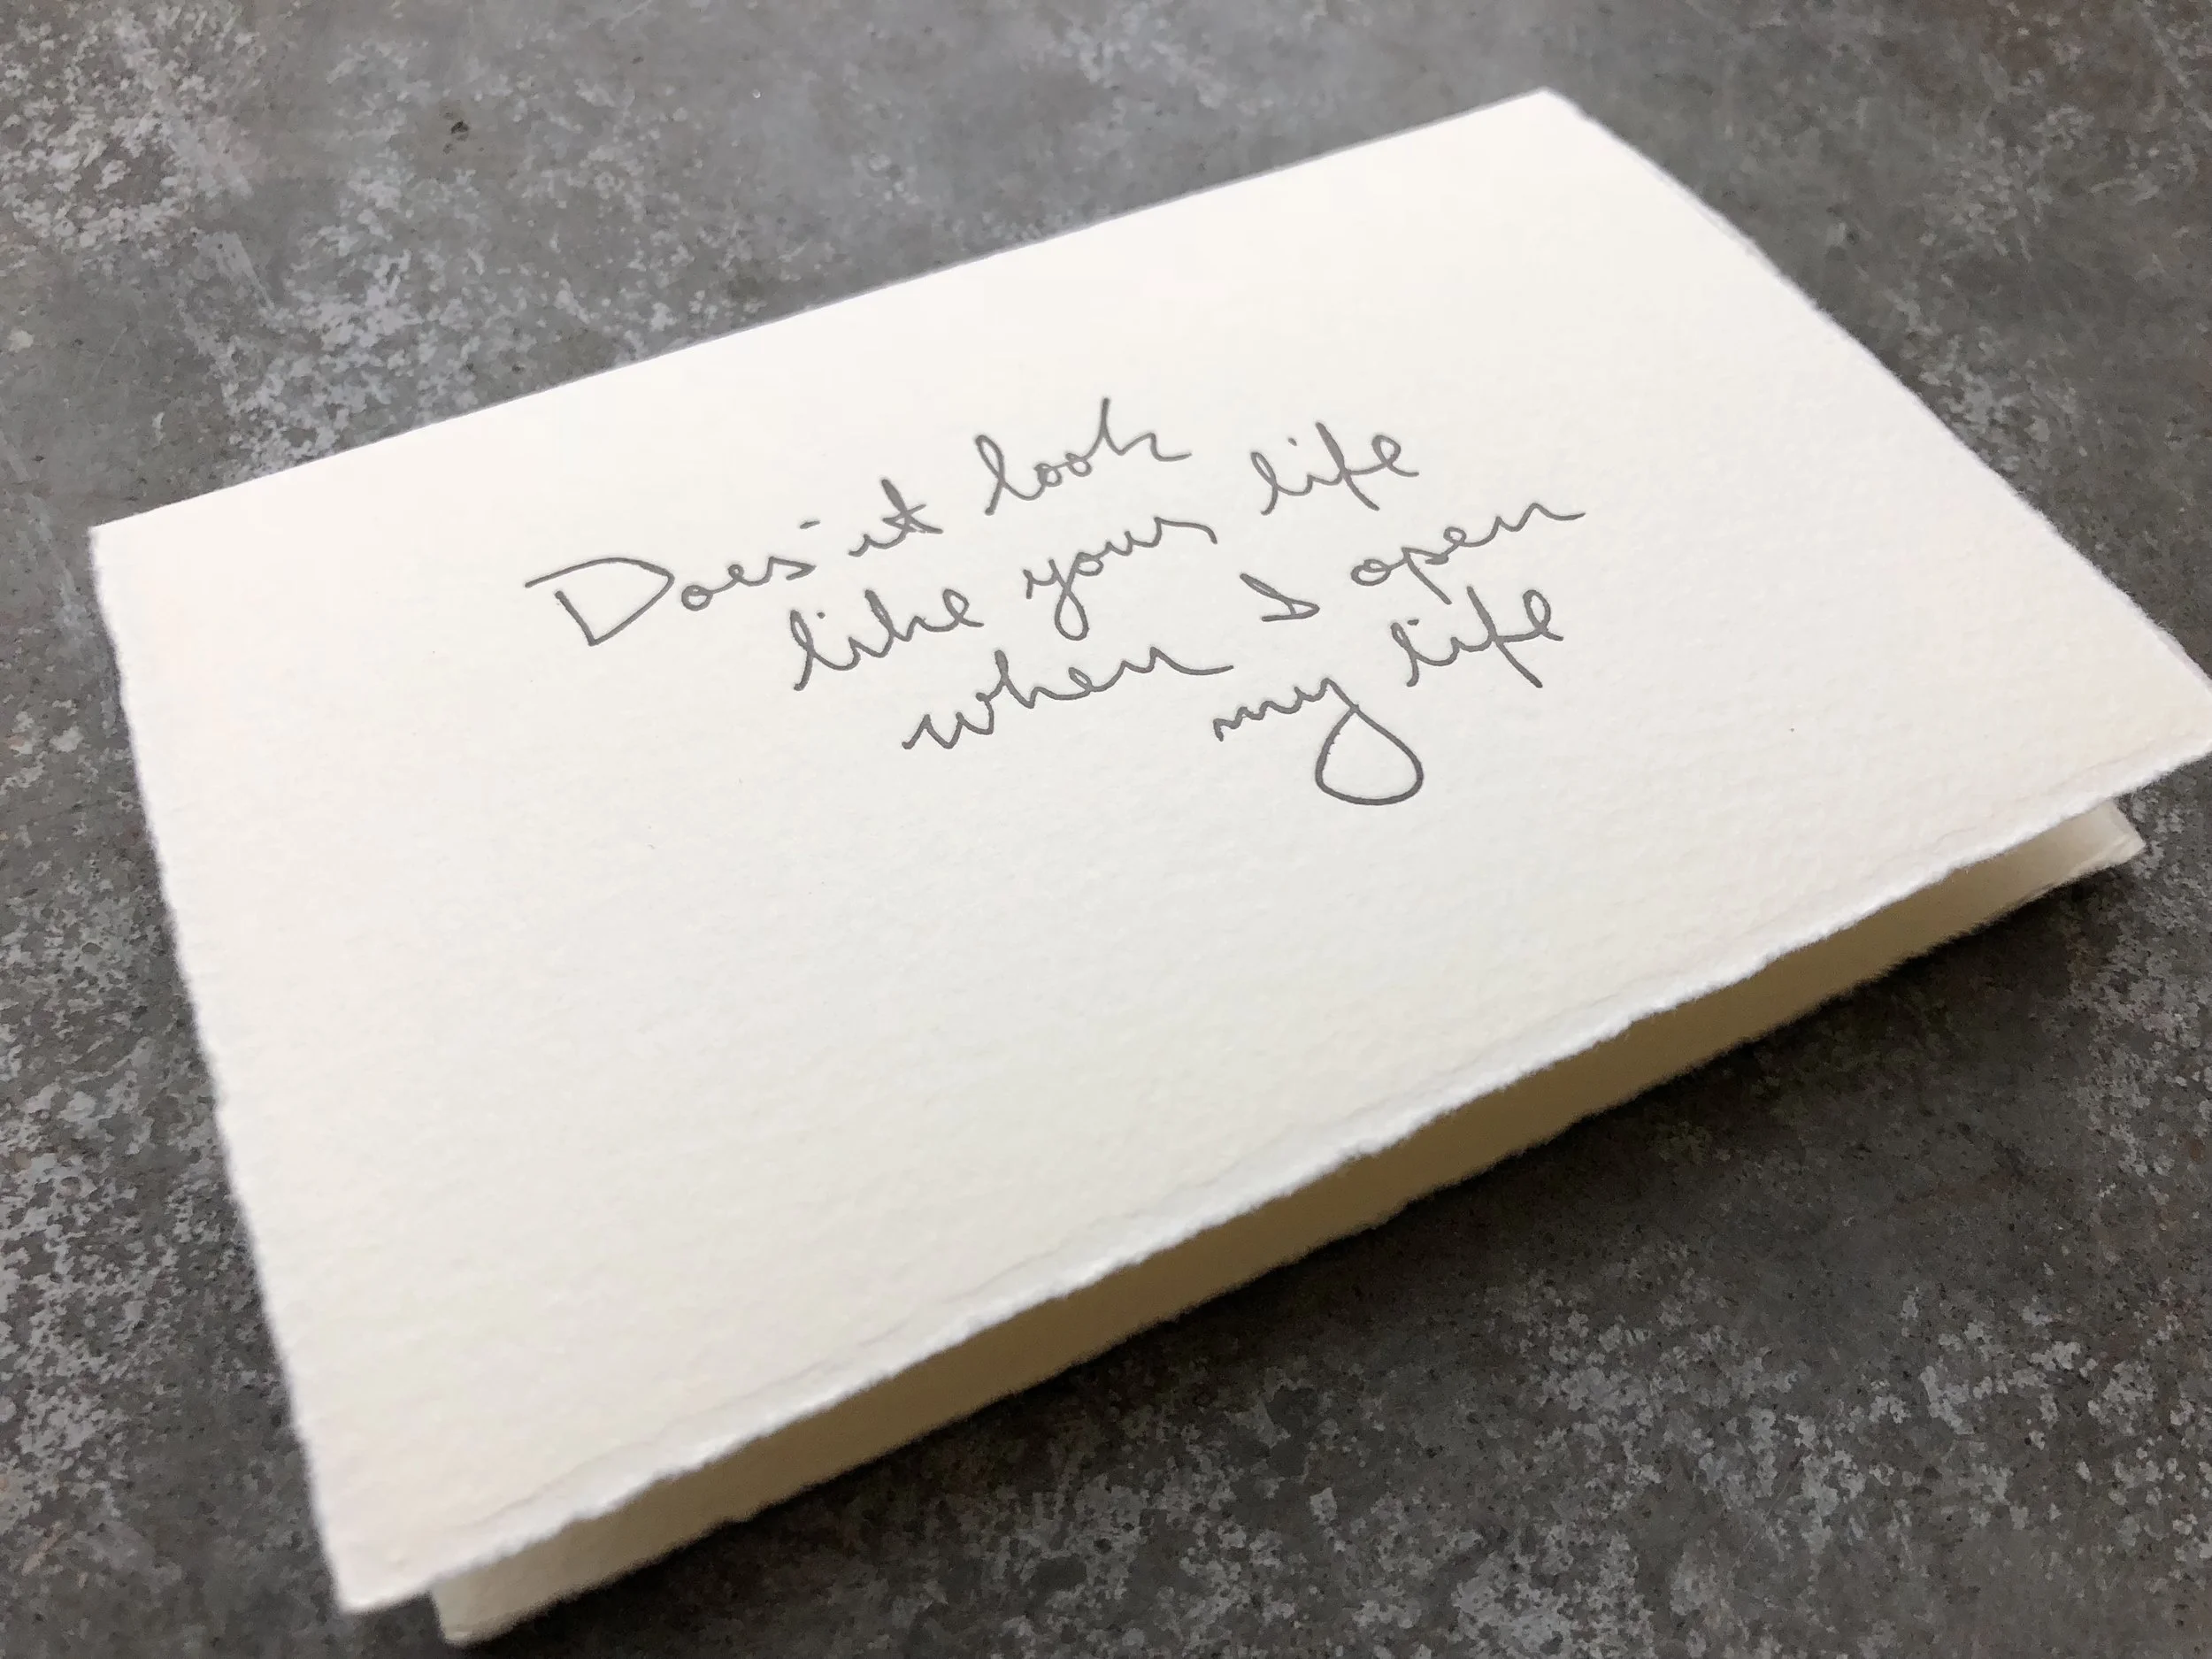 Does it look
like your life
when I open
my life